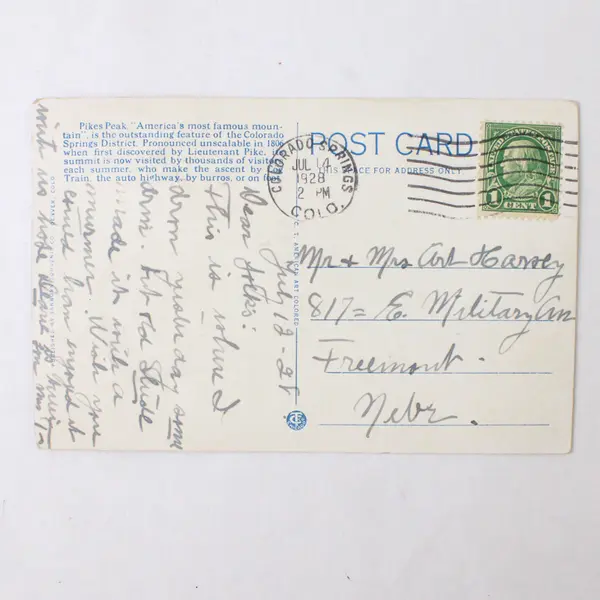 Pikes Peak, "America's most famous moun-
tain", is the outstanding feature of the Colorado
Springs District. Pronounced unscalable in 1806
when first discovered by Lieutenant Pike, its
summit is now visited by thousands of visitors
each summer, who make the ascent by Cog
Train, the auto highway, by burros, or on foot.
POST CARD
THIS SPACE FOR ADDRESS ONLY
COLORADO SPRINGS
JUL 14
1928
2 PM
COLO.
UNITED STATES POSTAGE
1 CENT 1
Mr & Mrs Art Harvey
817 = E. Military Av
Freemont.
Nebr.
July 13 - 28
Dear folks:
This is where I
drove yesterday some
but old Stude
made it with a
Wish you
could have enjoyed it
C. T. AMERICAN ART COLORED